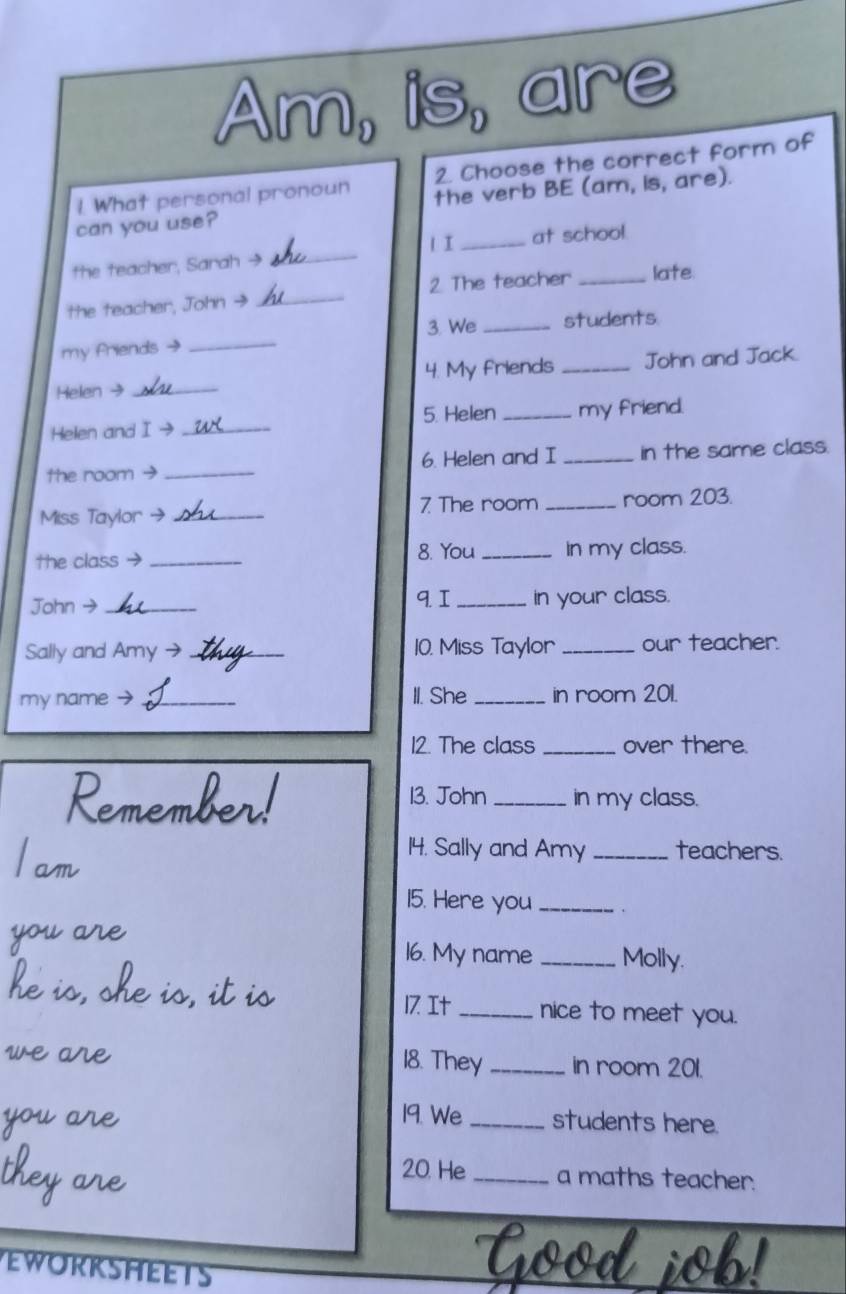 Am, is, are
1. What personal pronoun
can you use?
the teacher, Sarah → she
the teacher, John → he
my friends → ______
Helen → she
Helen and I → we
the room → ______
Miss Taylor → she
the class → ______
John → he
Sally and Amy → they
my name → I
Remember!
I am
you are
he is, she is, it is
we are
you are
they are
EWORKSHEETS
2. Choose the correct form of
the verb BE (am, is, are).
1 I ______ at school.
2. The teacher ______ late.
3. We ______ students.
4. My friends ______ John and Jack.
5. Helen ______ my friend.
6. Helen and I ______ in the same class.
7. The room ______ room 203.
8. You ______ in my class.
9. I ______ in your class.
10. Miss Taylor ______ our teacher.
11. She ______ in room 201.
12. The class ______ over there.
13. John ______ in my class.
14. Sally and Amy ______ teachers.
15. Here you ______.
16. My name ______ Molly.
17. It ______ nice to meet you.
18. They ______ in room 201.
19. We ______ students here.
20. He ______ a maths teacher.
Good job!